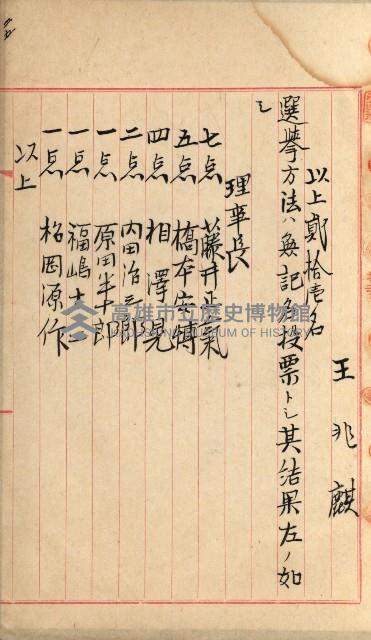 王兆麒
以上鄭拾壱名
選挙方法ハ無記名投票トシ其結果左ノ如
シ
理事長
七点 藤井正氣
五点 橋本安博
四点 相澤晃
二点 内田治三郎
一点 原田半郎
一点 福嶋
一点 岡源作
以上
高雄市立歷史博物館
KAOHSIUNG MUSEUM OF HISTORY